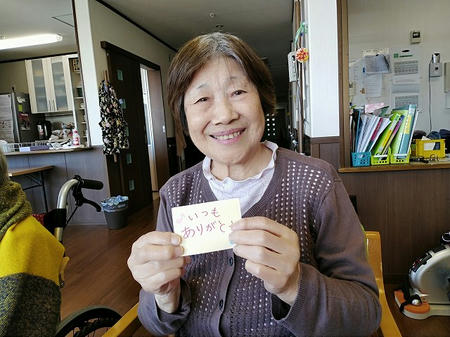 いつも
ありがと